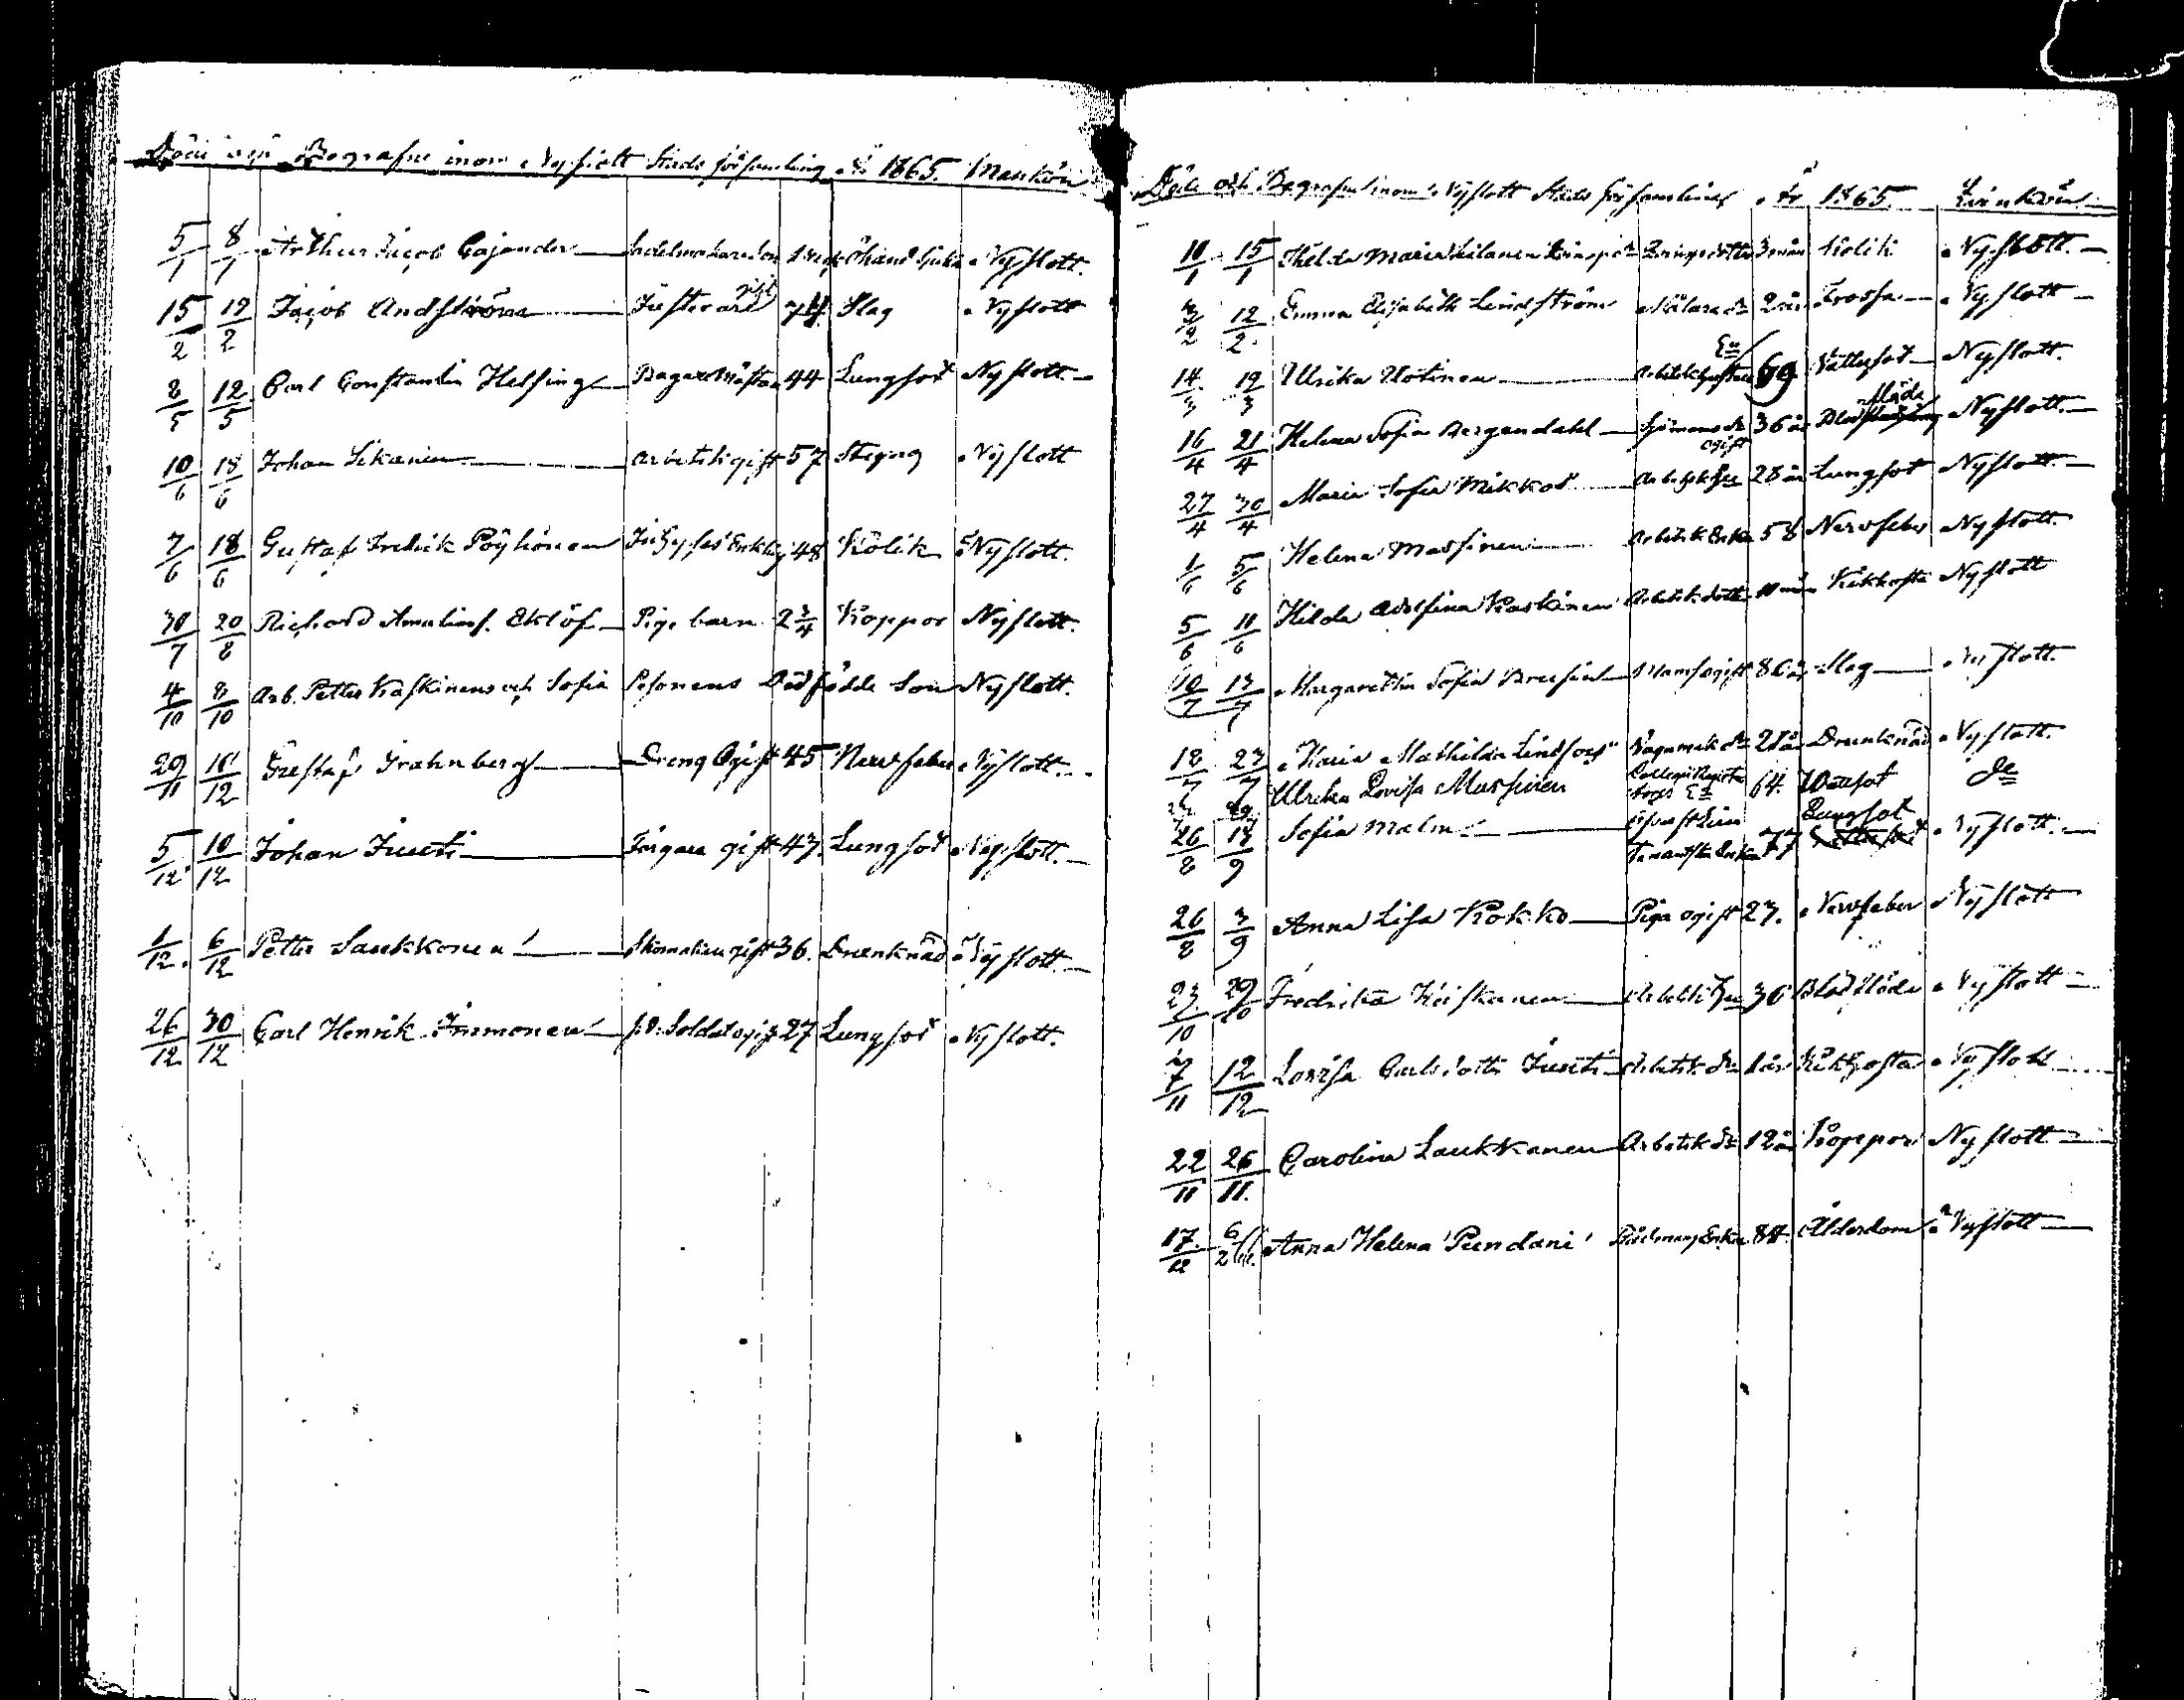 Döde och Begrafne inom Nyslott Stads församling År 1865. Mankön
5/1 8/1 Arthur Jacob Cajander 1 Nyslott.
15/2 19/2 Jacob Andström gift 74 Slag Nyslott
8/5 12/5 Carl Constantin Helsing Bagaremästare 44 Lungsot Nyslott.
10/6 18/6 Johan Sikanen Arbetsk gift 57 Styng Nyslott
7/6 18/6 Gustaf Fredrik Pöyhönen Enkling 48 Kolik Nyslott.
30/7 20/8 Richard Amalinf. Eklöf Pige barn 2 3/4 Koppor Nyslott.
4/10 8/10 Arb. Petter Kaskinens och Sofia Pesonens Dödfödde Son Nyslott.
29/11 10/12 Gustaf Grahnberg Dreng Ogift 45 Nervfeber Nyslott.
5/12 10/12 Johan Juuti Färgare gift 47. Lungsot Nyslott.
1/12. 6/12 Petter Laukkonen Skomakare gift 36. Drunknad Nyslott.
26/12 30/12 Carl Henrik Immonen Soldat ogift 27 Lungsot Nyslott.
Döde och Begrafne inom Nyslott Stads församling År 1865. Qvinkön
10/1 15/1 Maria 3 mån Kolik Nyslott.
12/2 Emma Elisabeth Lindström Målare dr 2 år Trossa Nyslott
14/3 19/3 Ulrika Kotinen Arbetsk Ea 69 Vattusot Nyslott.
16/4 21/4 Helena Sofia Bergendahl Sjömans dr ogift 36 år Blodflöde Nyslott.
27/4 30/4 Maria Sofia Mikkos 28 år Lungsot Nyslott.
1/6 5/6 Helena Massinen Arbetsk Enka 58 Nervfeber Nyslott.
5/6 11/6 Hilda Adolfina Kaskinen Arbetsk dotter mån Kikhosta Nyslott
10/7 Margaretha Sofia ogift 86 år Slag Nyslott.
18/7 23/7 Maria Mathilda Lindfors 21 år Drunknad Nyslott.
Ulrika Lovisa Massinen 64. Wattusot do
26/8 Sofia Malm Enka 77 Lungsot Nyslott.
26/8 3/9 Anna Lisa Kokko Piga ogift 27. Nervfeber Nyslott
23/10 29/10 Fredrika Heiskanen 36 Blodflöde Nyslott
7/11 12/12 Lovisa Carlsdotter Juuti Arbetsk dr 1 år Kikhosta Nyslott
22/11 26/11. Carolina Laukkanen Arbetsk dr 12 år Koppor Nyslott
17/12 Anna Helena Pundani Enka 84. Ålderdom Nyslott